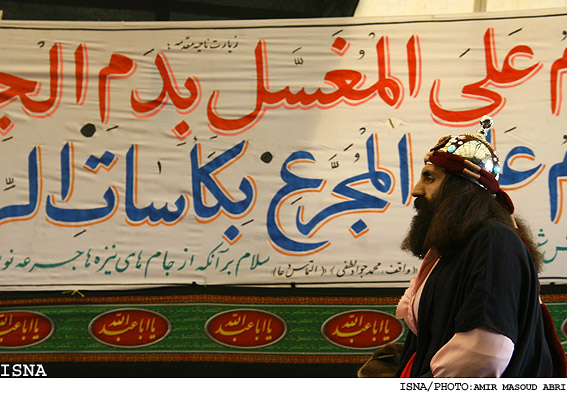 زیارت ناحیه مقدسه:
م عَلی المُغَسل بِدَمِ الج
م عَلی المُجَرَّعِ بکاساتِ الر
سلام بر آنکه از جام های نیزه ها جرعه نو
(واقف: محمد جواد لطفی) (التماس دعا)
یا اباعبدالله یا اباعبدالله یا اباعبدالله یا اباعبدالله
ISNA
ISNA/PHOTO:AMIR MASOUD ABRI